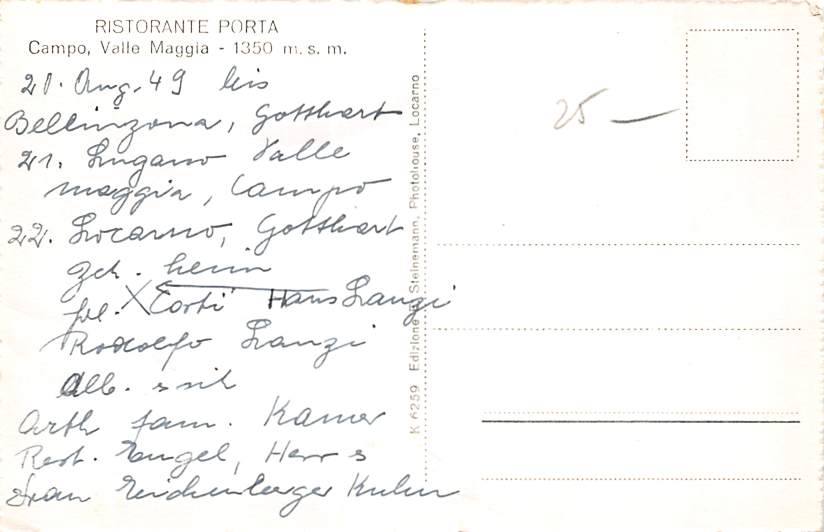 RISTORANTE PORTA
Campo, Valle Maggia - 1350 m. s. m.
20. Aug. 49 bis
Bellinzona, Gotthart
21. Lugano Valle
maggia, Campo
22. Locarno, Gotthart
heim
Corti Hans Lanzi
Rodolfo Lanzi
Alb.
Arth fam. Kamer
Rest. Engel, Herr
Frau Eichenberger Kuhn
25 —
K 6259 Edizione Steinemann, Photohouse, Locarno